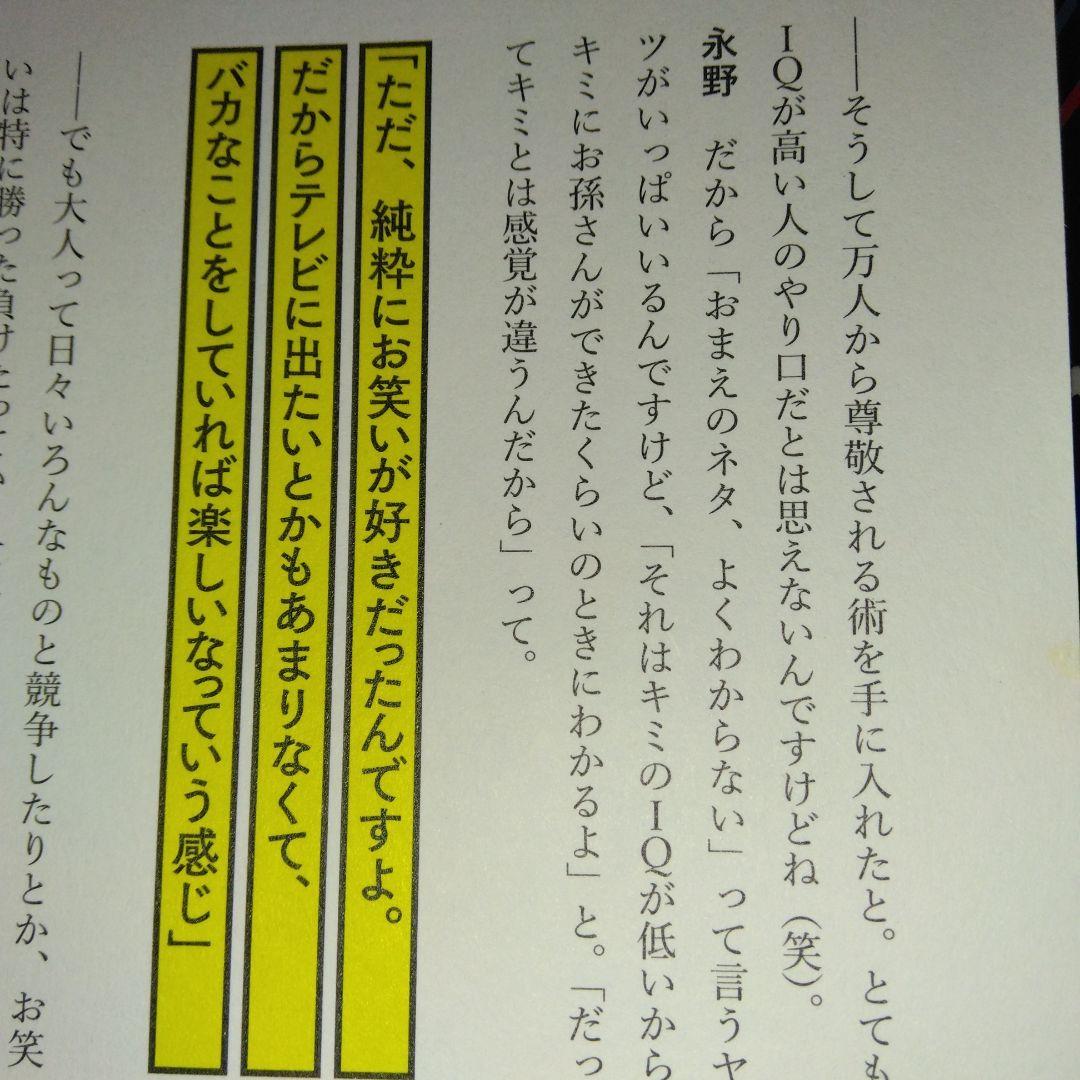 ――そうして万人から尊敬される術を手に入れたと。とても
IQが高い人のやり口だとは思えないんですけどね（笑）。
永野　だから「おまえのネタ、よくわからない」って言うヤ
ツがいっぱいいるんですけど、「それはキミのIQが低いから
キミにお孫さんができたくらいのときにわかるよ」と。「だっ
てキミとは感覚が違うんだから」って。
「ただ、純粋にお笑いが好きだったんですよ。
だからテレビに出たいとかもあまりなくて、
バカなことをしていれば楽しいなっていう感じ」
――でも大人って日々いろんなものと競争したりとか、お笑
いは特に勝った負けたって